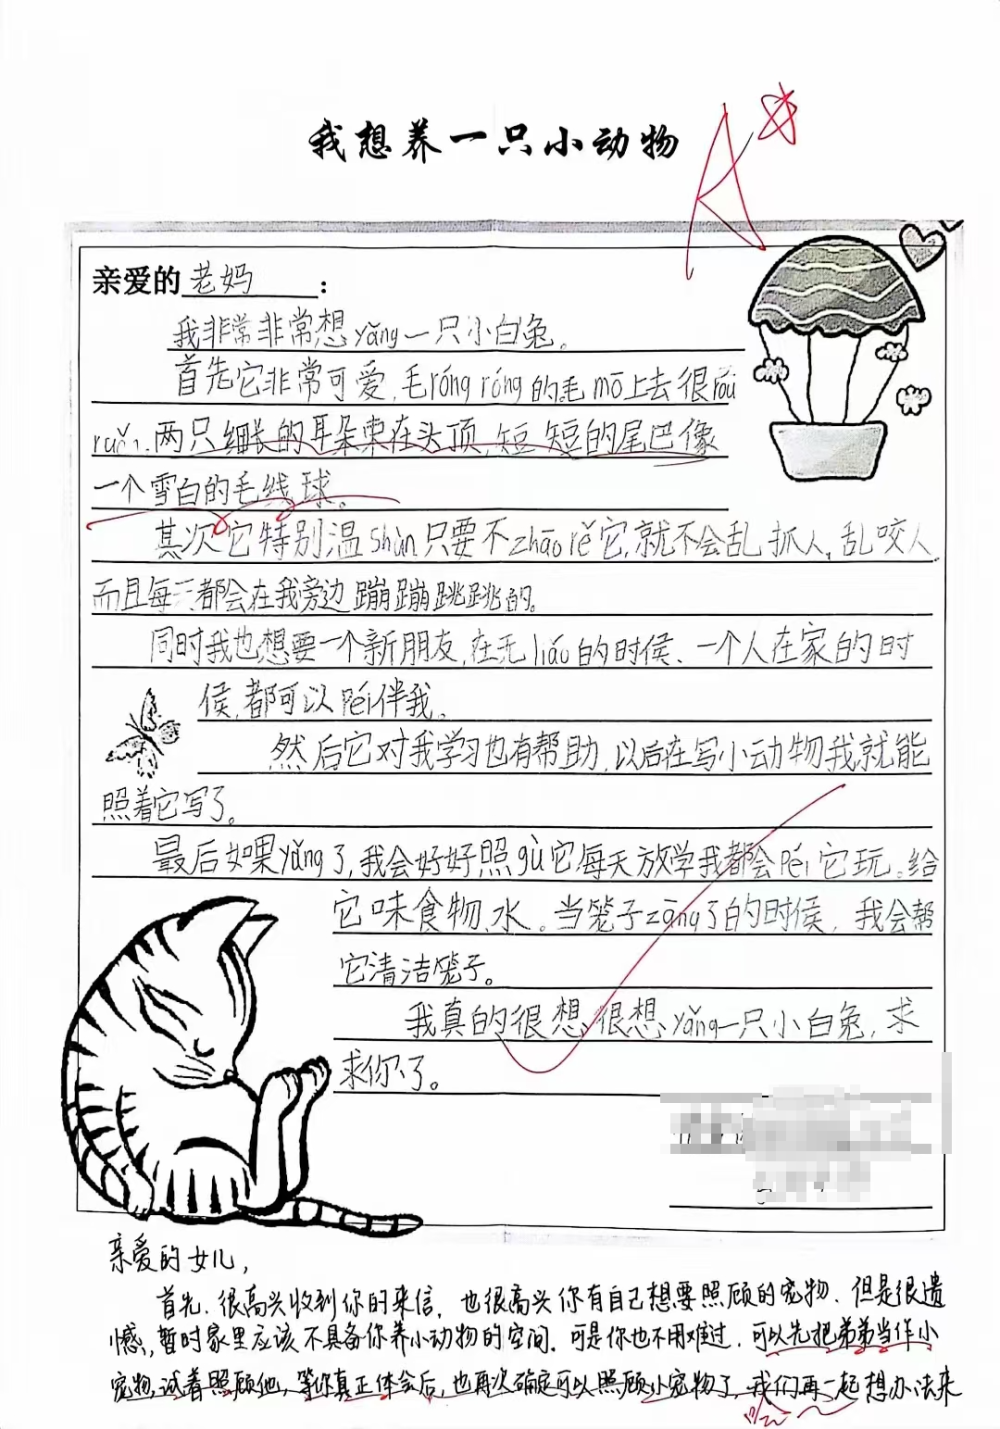 我想养一只小动物
A
亲爱的老妈：
我非常非常想yǎng一只小白兔。
首先它非常可爱，毛róng róng的毛mō上去很róu
ruǎn，两只细长的耳朵束在头顶，短短的尾巴像
一个雪白的毛线球。
其次它特别温shùn只要不zhāo rě它，就不会乱抓人，乱咬人，
而且每天都会在我旁边蹦蹦跳跳的。
同时我也想要一个新朋友，在无liáo的时侯、一个人在家的时
侯，都可以Péi伴我。
然后它对我学习也有帮助，以后在写小动物我就能
照着它写了。
最后如果yǎng了，我会好好照gù它每天放学我都会Péi它玩。给
它味食物、水。当笼子zāng了的时侯，我会帮
它清洁笼子。
我真的很想、很想、yǎng一只小白兔，求
求你了。
亲爱的女儿，
首先，很高兴收到你的来信，也很高兴你有自己想要照顾的宠物，但是很遗
憾，暂时家里应该不具备你养小动物的空间，可是你也不用难过，可以先把弟弟当作小
宠物，试着照顾他，等你真正体会后，也再次确定可以照顾小宠物了，我们再一起想办法来